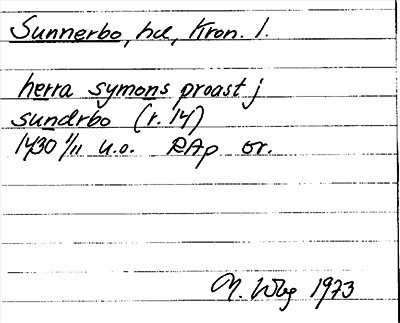 Sunnerbo, hd, Kron. l.
herra symons proast j
sundrbo (r. 14)
1430 1/11 u.o. RAp or.
N. Wbg 1973